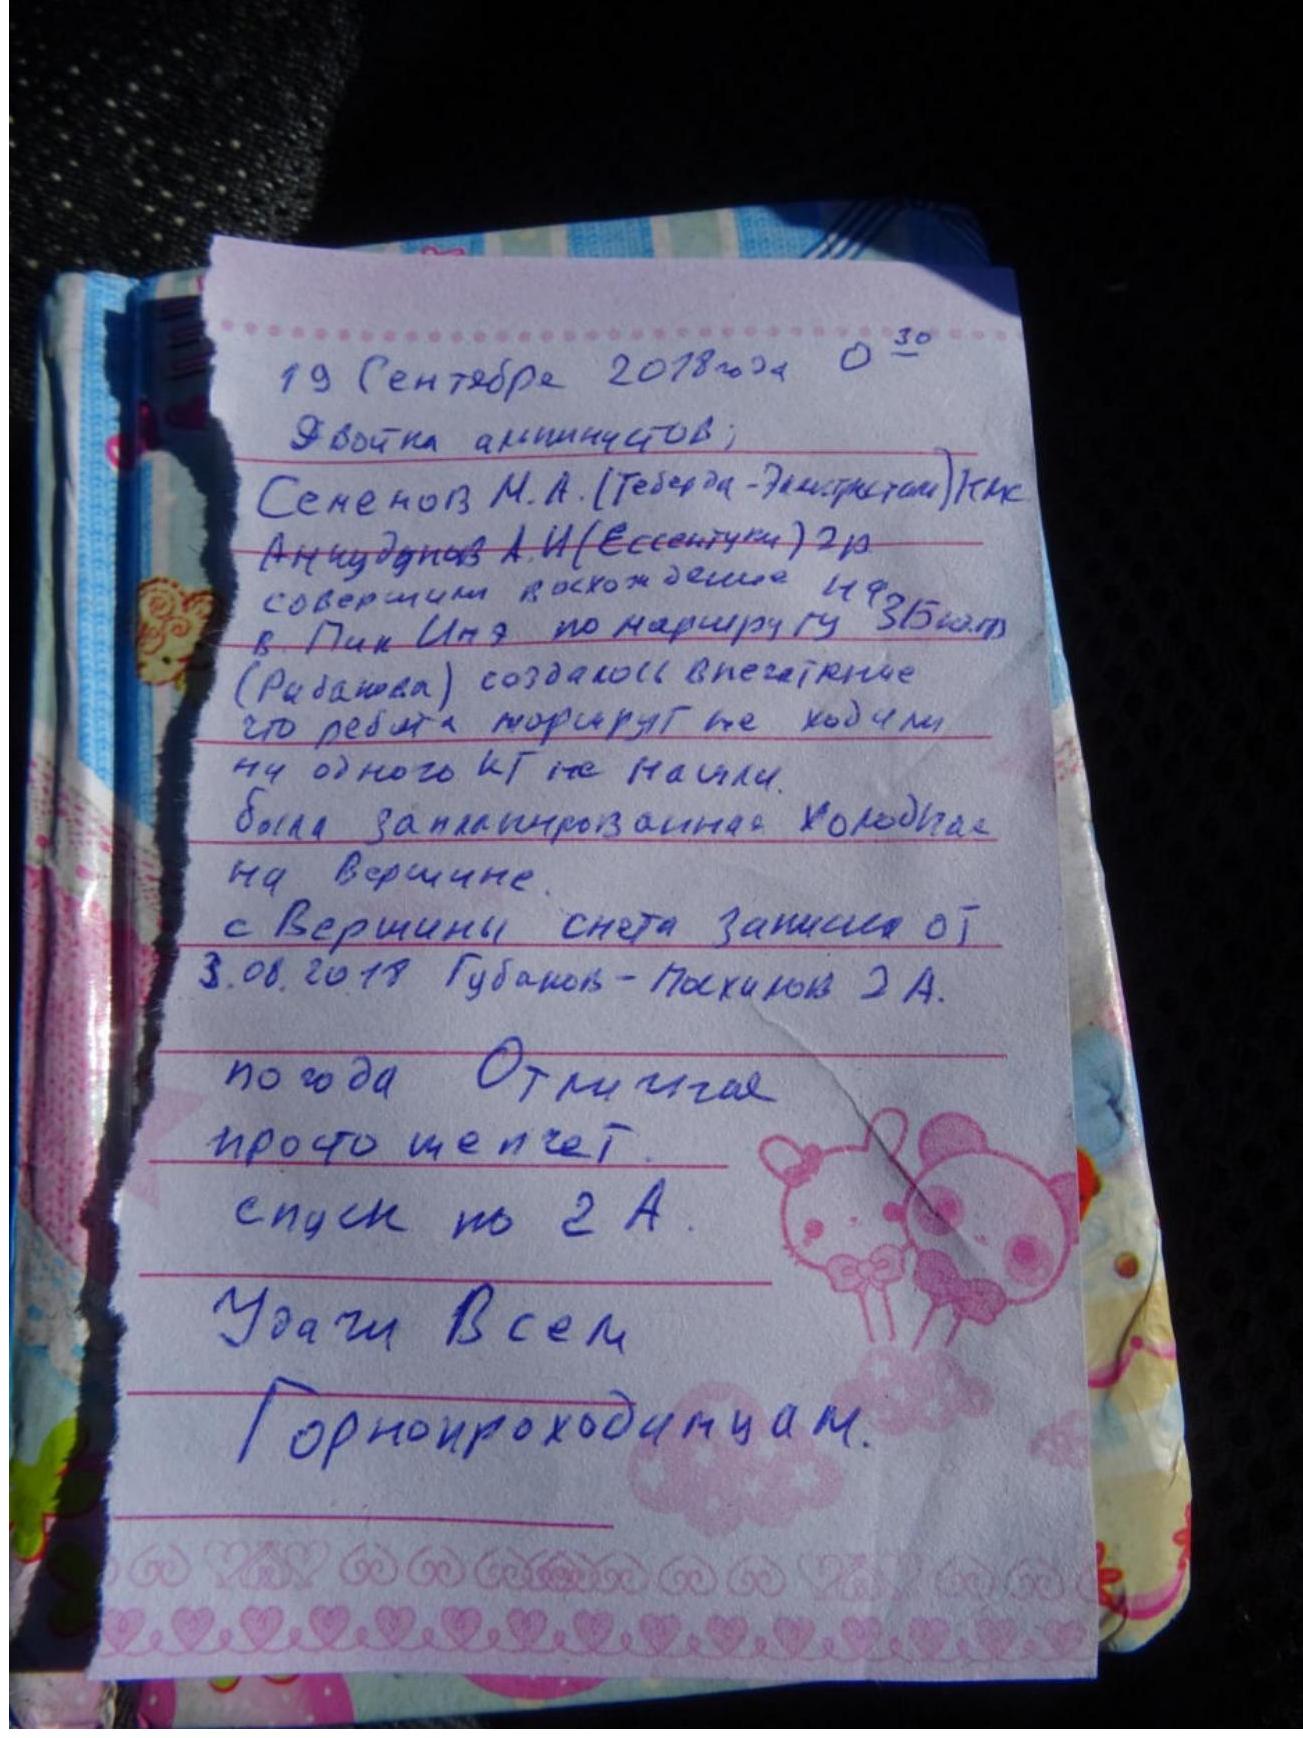 19 Сентября 2018 года 0 30
Двойка альпинистов;
Семенов М.А. (Теберда-) КМС
Анкудинов А.И (Ессентуки) 2р
совершили восхождение на
в. Пик Инэ по маршруту 3Б к.тр
(Рыбакова) создалось впечатление
что ребята маршрут не ходили
ни одного КТ не нашли.
была запланированная холодная
на Вершине.
с Вершины снята записка от
3.08.2018 Губанов - 2А.
погода Отличная
просто шепчет.
спуск по 2А.
Удачи Всем
Горнопроходимцам.